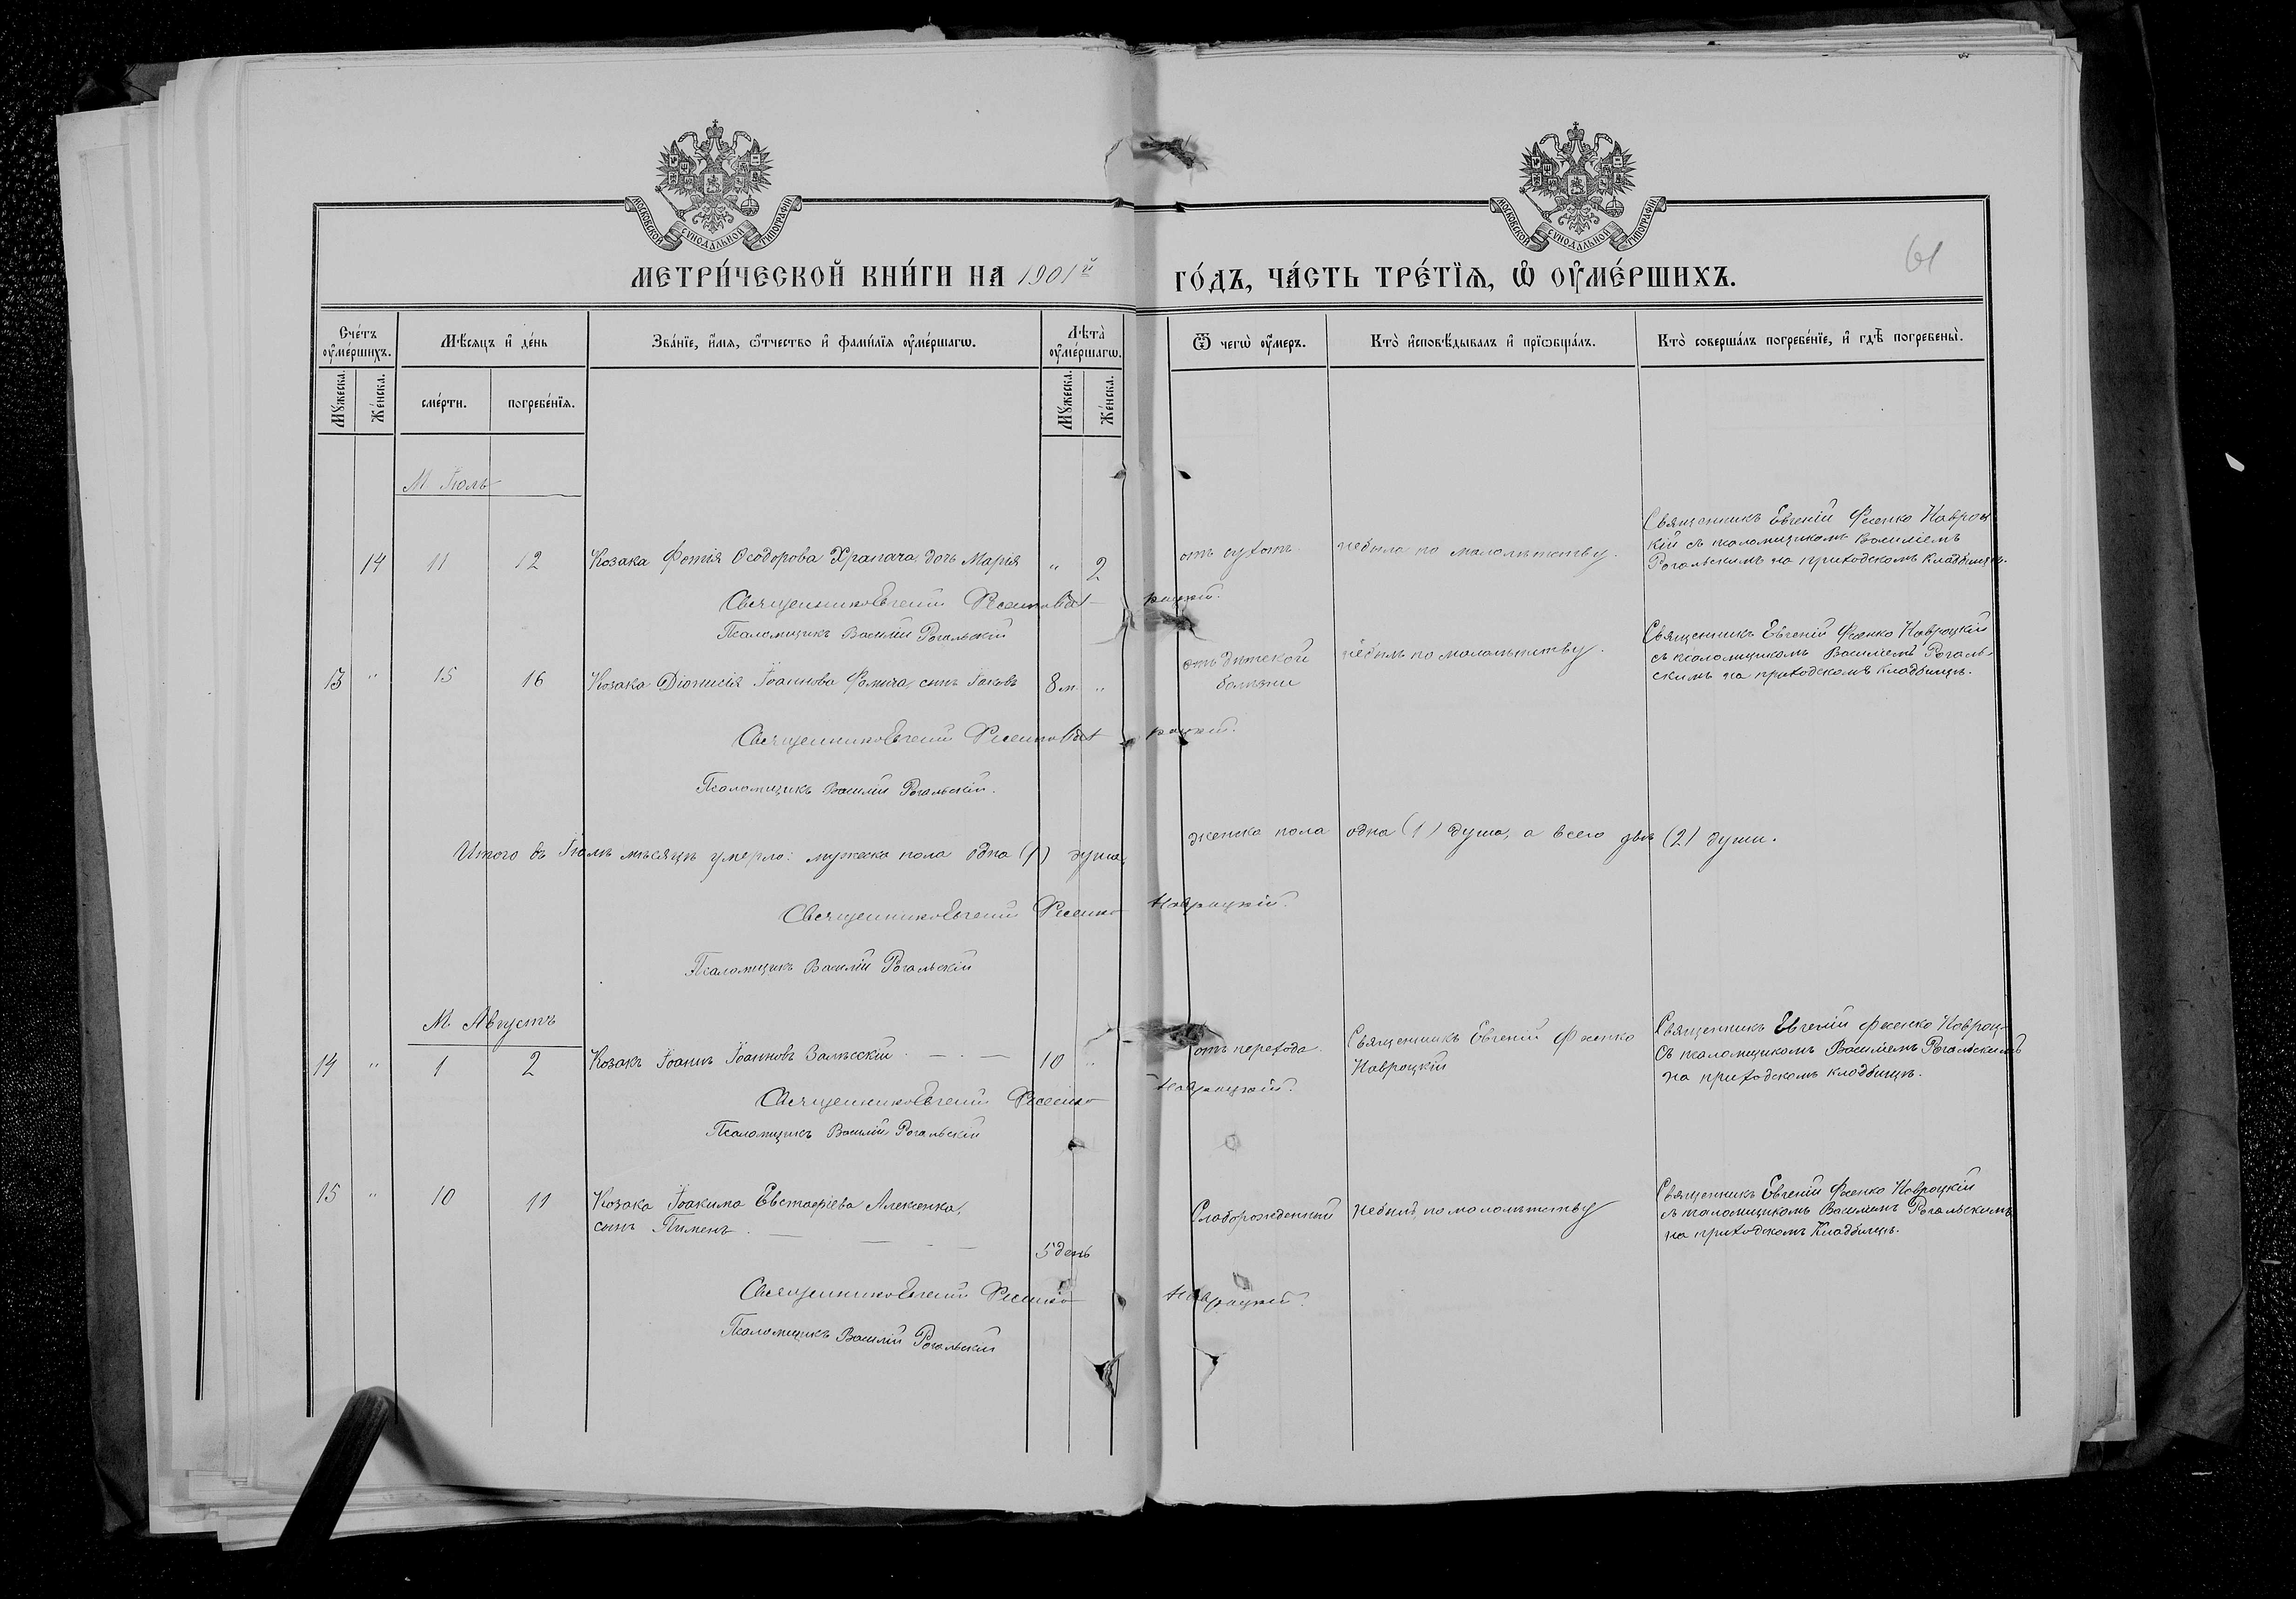 МОСКОВСКОЙ СУНОДАЛЬНОЙ ТИПОГРАФІИ
МОСКОВСКОЙ СУНОДАЛЬНОЙ ТИПОГРАФІИ
61
МЕТРИ́ЧЕСКОЙ КНИ́ГИ НА 1901й ГО́ДЪ, ЧА́СТЬ ТРЕ́ТЇѦ, Ѽ ОУ҆МЕ́РШИХЪ.
Сче́тъ оу҆ме́ршихъ.
Мѣ́сяцъ и҆ де́нь
Зва́нїе, и҆́мя, ѻ҆́тчество и҆ фами́лїя оу҆ме́ршагѡ.
Лѣ́та оу҆ме́ршагѡ.
Ѿ чегѡ̀ оу҆́меръ.
Кто̀ и҆сповѣ́дывалъ и҆ прїѡбща́лъ.
Кто̀ соверша́лъ погребе́нїе, и҆ гдѣ̀ погребены̀.
Мꙋ́жеска.
Же́нска.
сме́рти.
погребе́нїя.
Мꙋ́жеска.
Же́нска.
М. Іюль
14 11 12 Козака Фотія Ѳеодорова Храпача, дочь Марія " 2 отъ сухотъ. небыла по малолѣтству.
Священникъ Евгеній Фесенко Навроц
кій съ псаломщикомъ Василіемъ
Рогальскимъ на приходскомъ кладбищѣ.
Священникъ Евгеній Фесенко Навроцкій.
Псаломщикъ Василій Рогальскій
13 " 15 16 Козака Діонисія Іоаннова Фомича, сынъ Іаковъ 8 м. " отъ дѣтской
болѣзни
небылъ по малолѣтству.
Священникъ Евгеній Фесенко Навроцкій
съ псаломщикомъ Василіемъ Рогаль-
скимъ на приходскомъ кладбищѣ.
Священникъ Евгеній Фесенко Навроцкій.
Псаломщикъ Василій Рогальскій.
Итого въ Іюлѣ мѣсяцѣ умерло: мужеска пола одна (1) душа, женска пола одна (1) душа, а всего двѣ (2) души.
Священникъ Евгеній Фесенко Навроцкій.
Псаломщикъ Василій Рогальскій
М. Августъ
14 " 1 2 Козакъ Іоаннъ Іоанновъ Залѣсскій 10 " отъ перехода.
Священникъ Евгеній Фесенко
Навроцкій
Священникъ Евгеній Фесенко Навроц-
съ псаломщикомъ Василіемъ Рогальскимъ
на приходскомъ кладбищѣ.
Священникъ Евгеній Фесенко Навроцкій.
Псаломщикъ Василій Рогальскій
15 " 10 11 Козака Іоакима Евстафіева Алексенка,
сынъ Пименъ.
5 день
Слаборожденный небылъ по малолѣтству
Священникъ Евгеній Фесенко Навроцкій
съ псаломщикомъ Василіемъ Рогальскимъ
на приходскомъ кладбищѣ.
Священникъ Евгеній Фесенко Навроцкій.
Псаломщикъ Василій Рогальскій